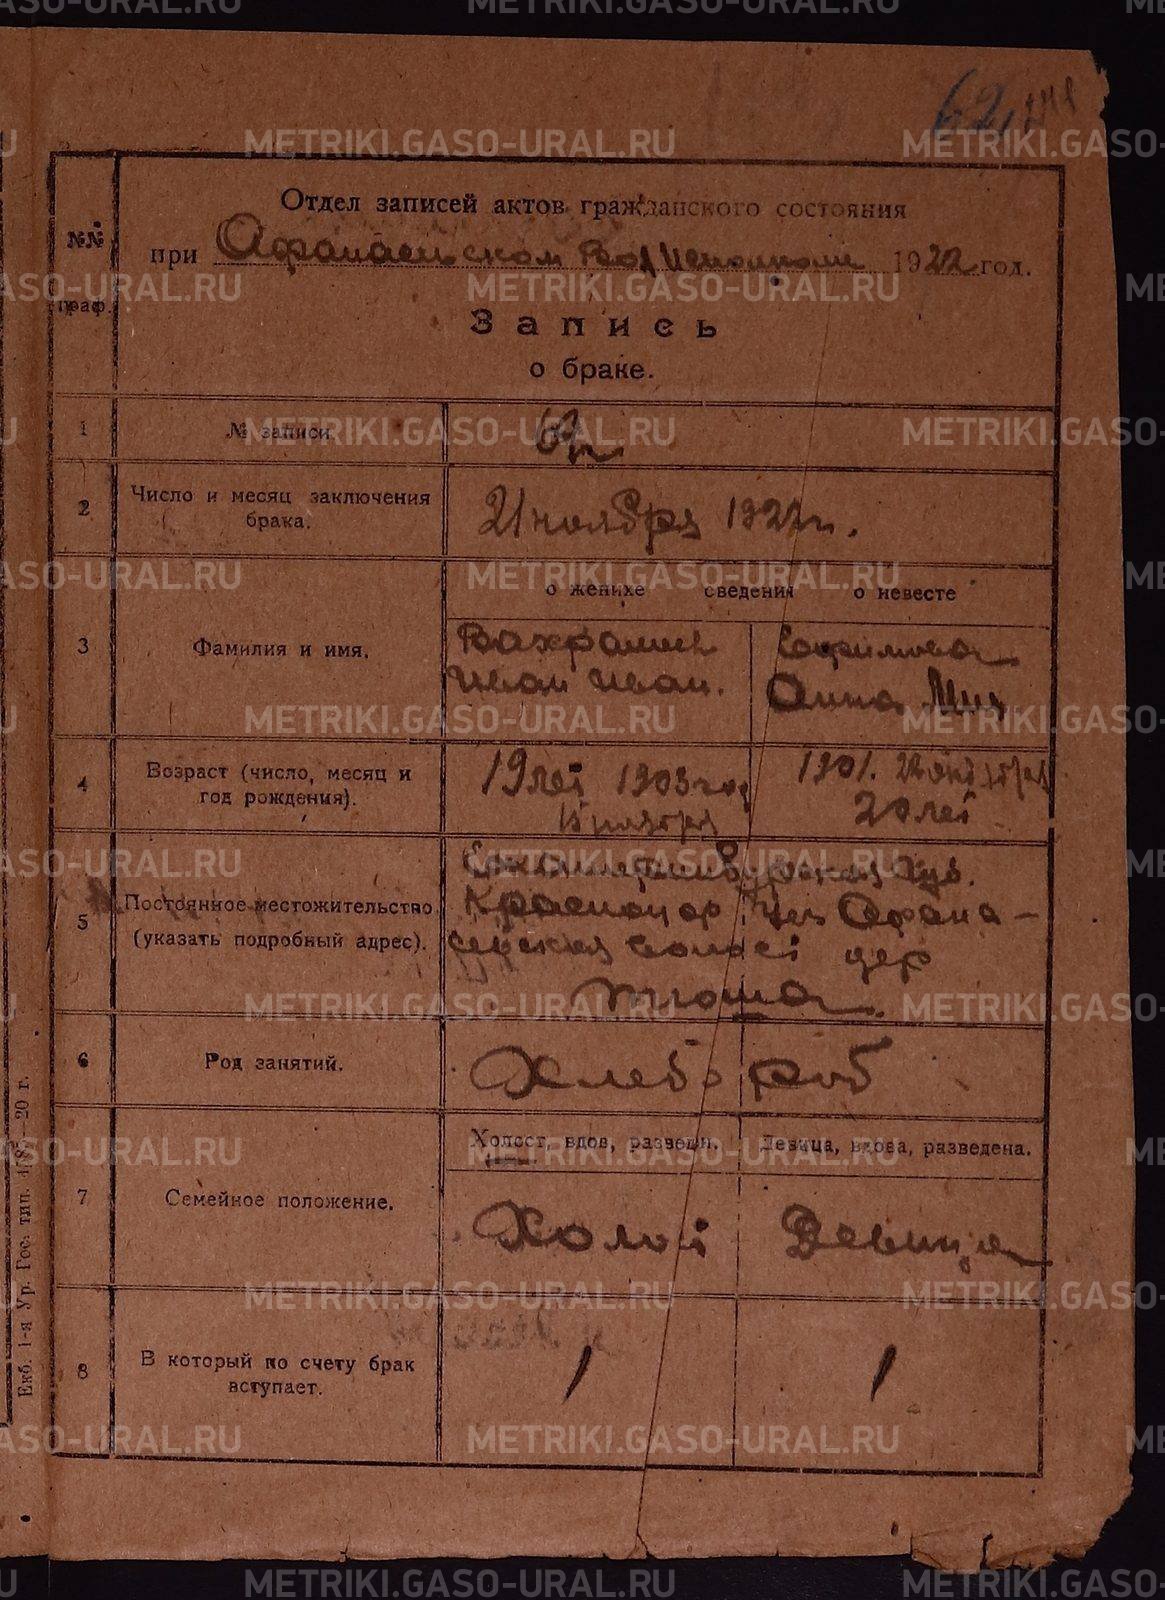 62
Отдел записей актов гражданского состояния
№№ граф.
при Афанасьевском Вол Исполкоме 1922 год.
Запись
о браке.
1 № записи.
2 Число и месяц заключения брака. 21 ноября 1922 г.
3 Фамилия и имя.
о женихе сведения о невесте
Вахрамеев Ефимова
Иван Иван. Анна Мих
4 Возраст (число, месяц и год рождения).
19 лет 1903 год 1901. 22 октября
15 ноября 20 лет
5 Постоянное местожительство (указать подробный адрес).
Екатеринбургская Губ.
Красноуф уез Афана-
севская волост дер
Тюша
6 Род занятий. Хлебороб
7 Семейное положение.
Холост, вдов, разведен. Девица, вдова, разведена.
Холост Девица
8 В который по счету брак вступает. 1 1
Екб. 1-я Ур. Гос. тип. 20 г.
METRIKI.GASO-URAL.RU